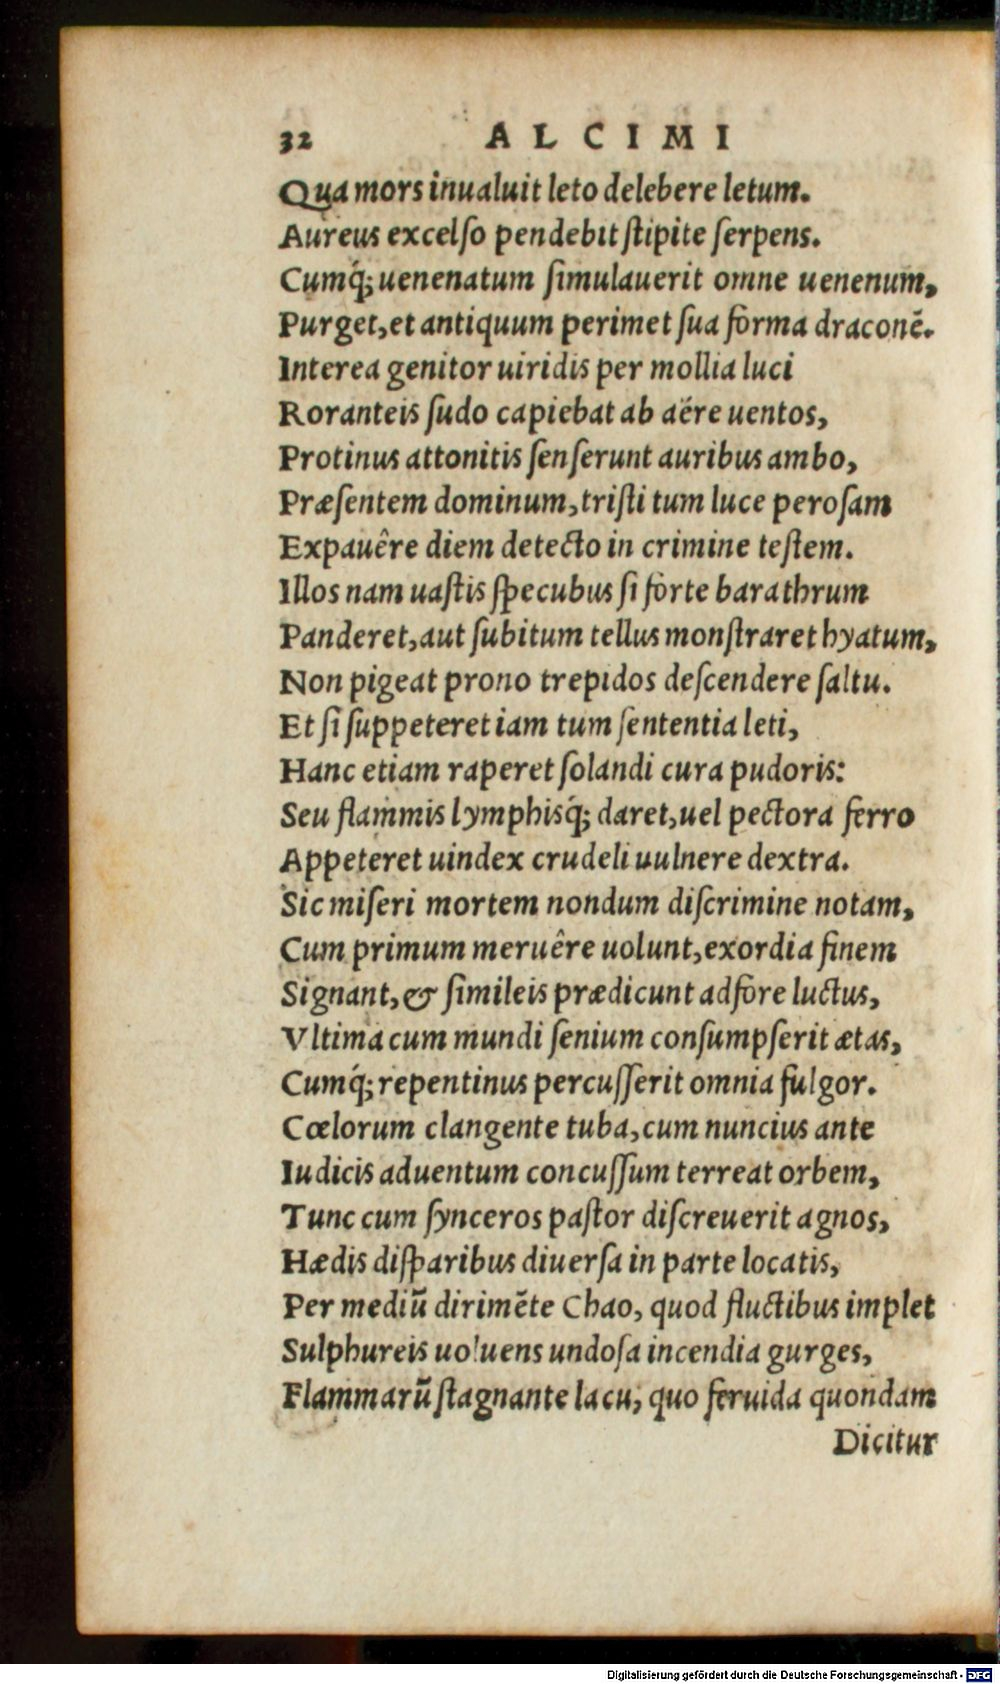 32 ALCIMI
Qua mors inualuit leto delebere letum.
Aureus excelſo pendebit ſtipite ſerpens.
Cumq́; uenenatum ſimulauerit omne uenenum,
Purget, et antiquum perimet ſua forma draconē.
Interea genitor uiridis per mollia luci
Roranteis ſudo capiebat ab aëre uentos,
Protinus attonitis ſenſerunt auribus ambo,
Præſentem dominum, triſti tum luce peroſam
Expauêre diem detecto in crimine teſtem.
Illos nam uaſtis ſpecubus ſi forte barathrum
Panderet, aut ſubitum tellus monſtraret hyatum,
Non pigeat prono trepidos deſcendere ſaltu.
Et ſi ſuppeteret iam tum ſententia leti,
Hanc etiam raperet ſolandi cura pudoris:
Seu flammis lymphisq́; daret, uel pectora ferro
Appeteret uindex crudeli uulnere dextra.
Sic miſeri mortem nondum diſcrimine notam,
Cum primum meruêre uolunt, exordia finem
Signant, & ſimileis prædicunt adfore luctus,
Vltima cum mundi ſenium conſumpſerit ætas,
Cumq́; repentinus percuſſerit omnia fulgor.
Cœlorum clangente tuba, cum nuncius ante
Iudicis aduentum concuſſum terreat orbem,
Tunc cum ſynceros paſtor diſcreuerit agnos,
Hædis diſparibus diuerſa in parte locatis,
Per mediū dirimēte Chao, quod fluctibus implet
Sulphureis uoluens undoſa incendia gurges,
Flammarū ſtagnante lacu, quo feruida quondam
Dicitur
Digitalisierung gefördert durch die Deutsche Forschungsgemeinschaft - DFG